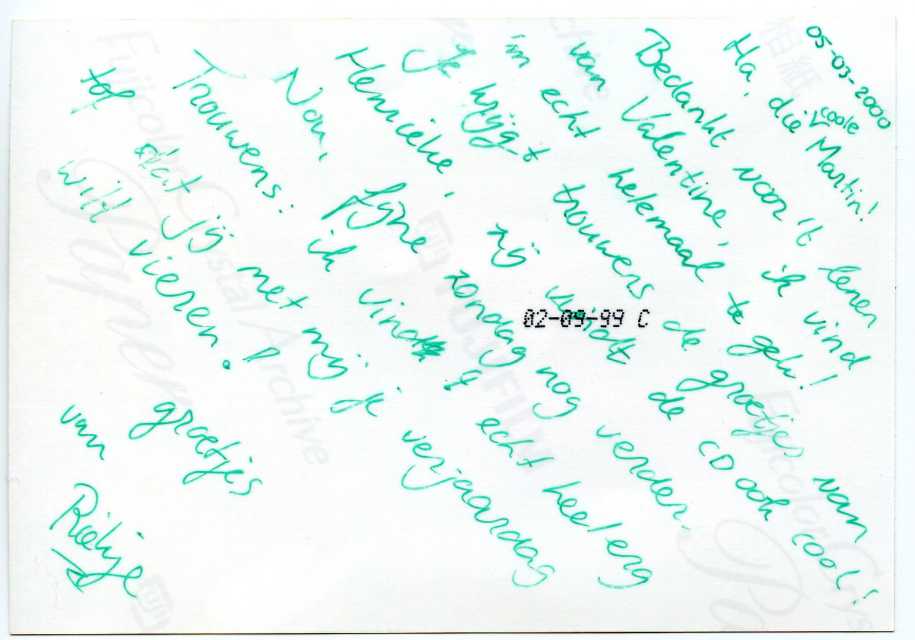 05-03-2000
Ha, die coole Martin!
Bedankt voor 't lenen
van Valentine, ik vind
'm echt helemaal te gek!
Je krijgt trouwens de groetjes van
Henrieke, zij vindt de CD ook cool!
Nou, fijne zondag nog verder.
Trouwens: ik vind 't echt heel erg
tof dat jij met mij je verjaardag
wilt vieren!
groetjes
van
Riekje
02-09-99 C
Fujicolor Crystal Archive
Paper
FUJIFILM
Fujicolor Crys